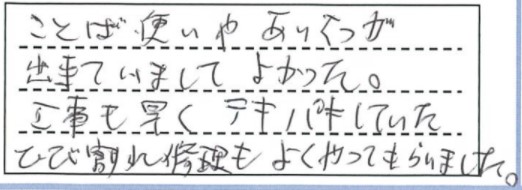 ことば使いや あいさつが
出来ていまして よかった。
工事も早く テキパキしていた
ひび割れ修理も よくやってもらいました。